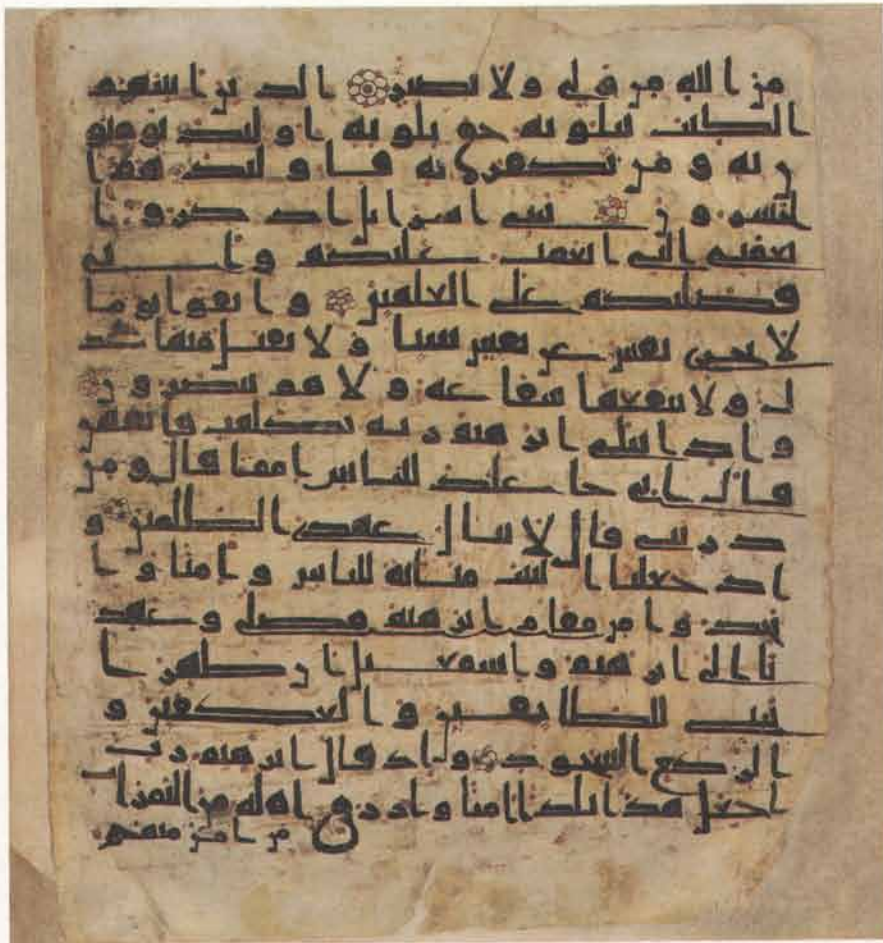 من الله من ولي ولا نصير الذين اتينهم
الكتب يتلونه حق تلوته اولئك يومنو
ن به ومن يكفر به فاولئك هم ا
لخسرون يبني اسرايل اذكروا
نعمتي التي انعمت عليكم واني
فضلتكم على العلمين واتقوا يوما
لا تجزي نفس عن نفس شيا ولا يقبل منها عد
ل ولا تنفعها شفاعة ولا هم ينصرون
واذ ابتلى ابرهيم ربه بكلمت فاتمهن
قال اني جاعلك للناس امما قال ومن
ذريتي قال لا ينال عهدي الظلمين و
اذ جعلنا البيت مثابة للناس وامنا وا
تخذوا من مقام ابرهيم مصلى وعهد
نا الى ابرهيم واسمعيل ان طهرا
بيتي للطايفين والعكفين و
الركع السجود واذ قال ابرهيم رب
اجعل هذا بلدا امنا وارزق اهله من الثمرات
من امن منهم